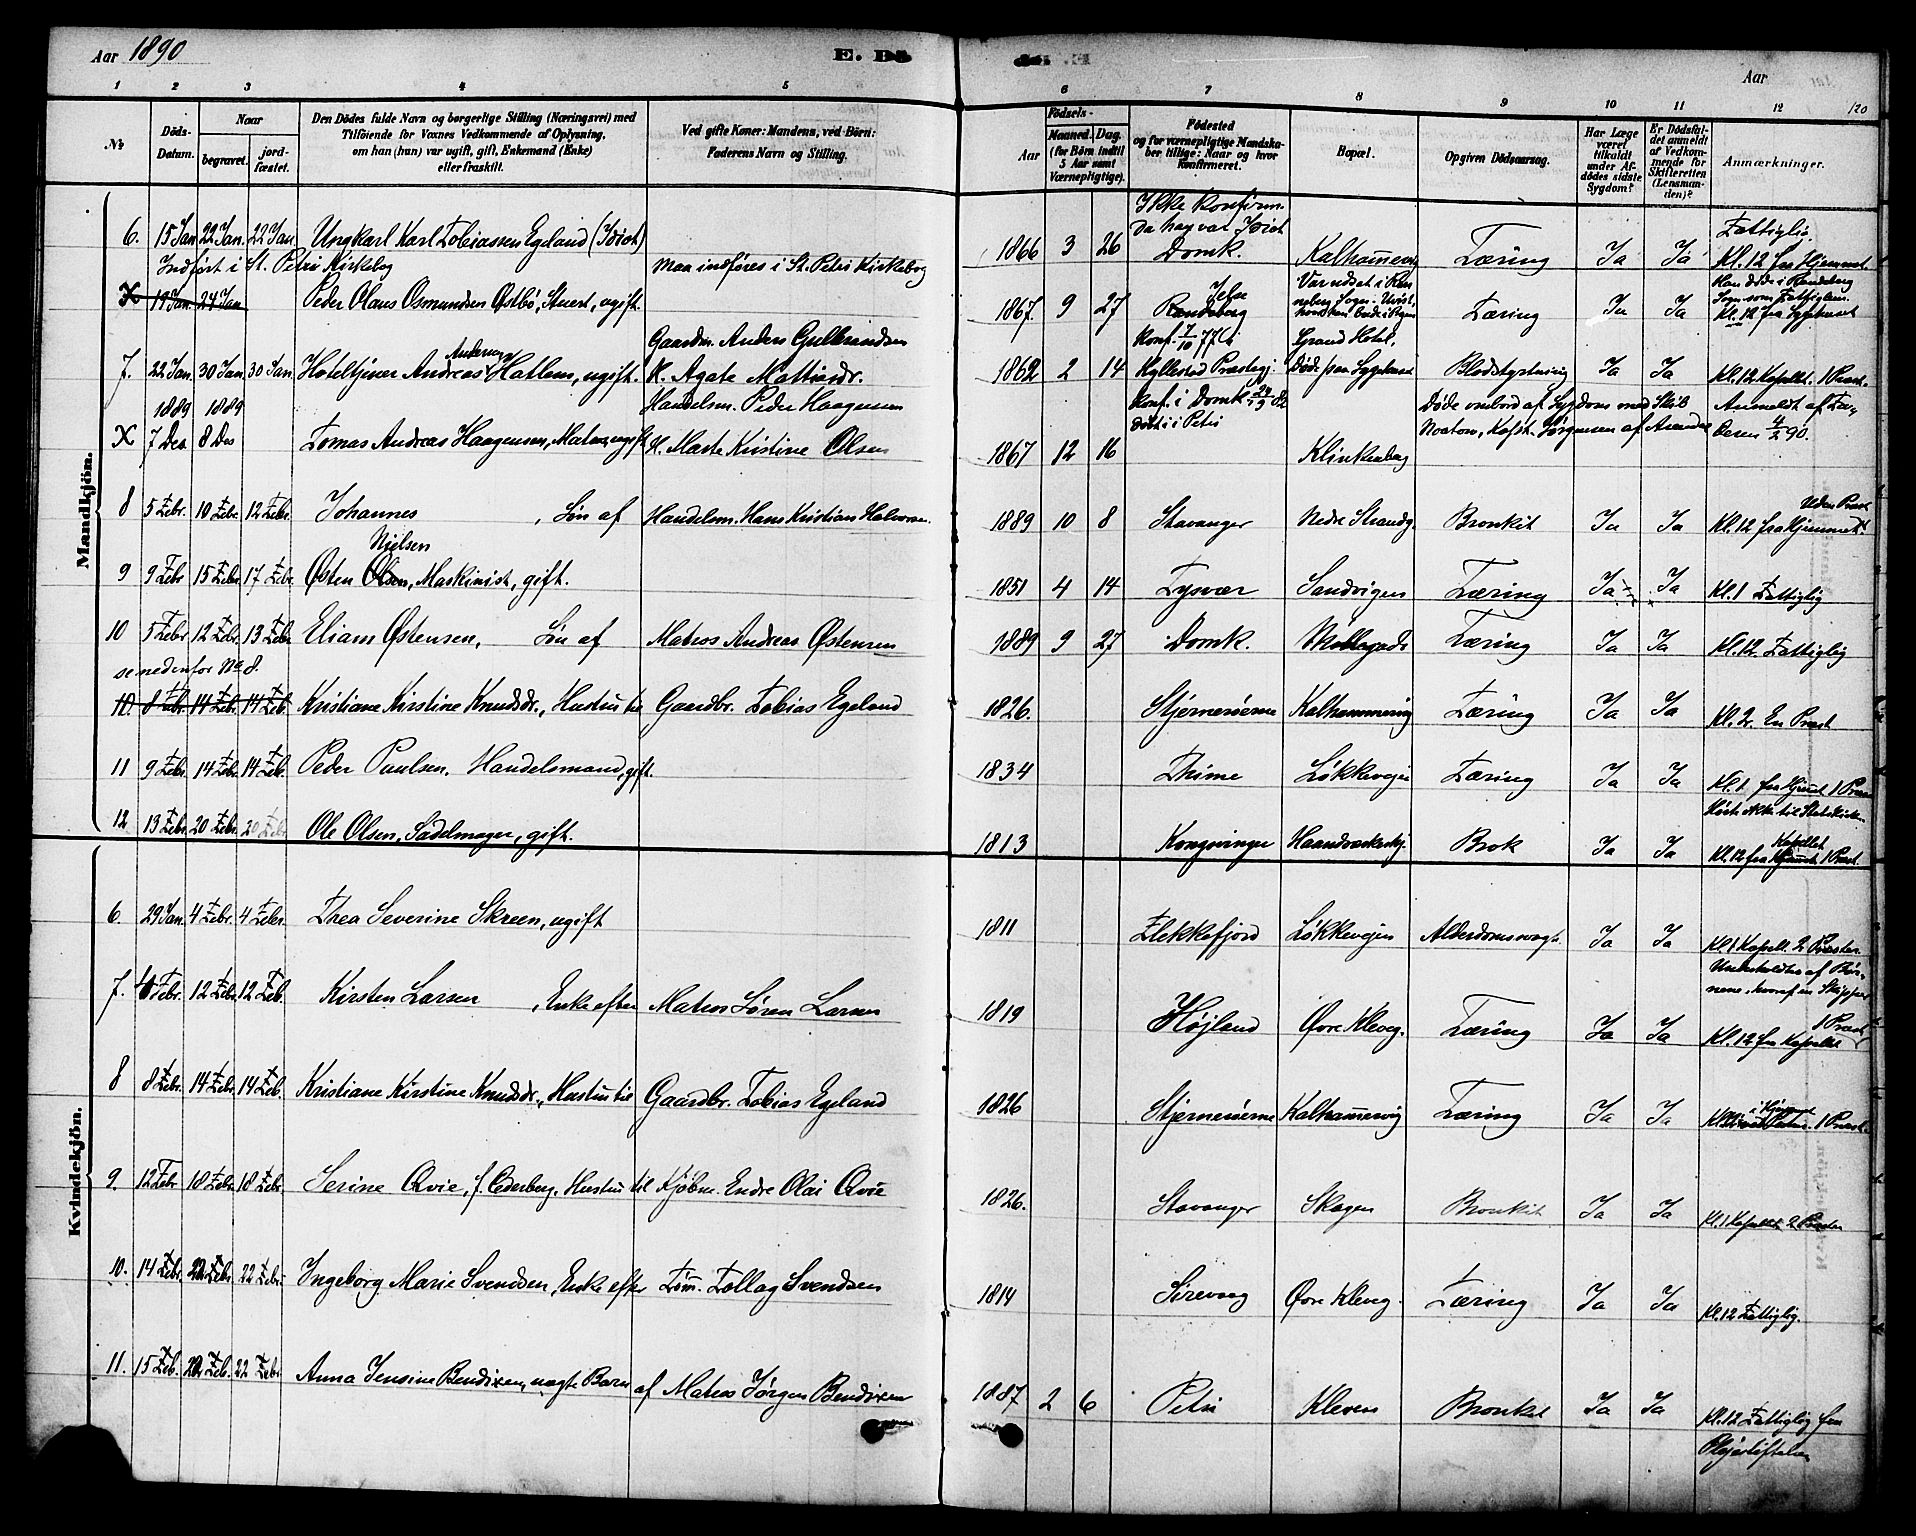 Aar 1890
E. Dö
Aar
120
1 2 3 4 5 6 7 8 9 10 11 12
№
Döds-Datum.
Naar
begravet.
jordfæstet.
Den Dödes fulde Navn og borgerlige Stilling (Næringsvei) med
Tilföiende for Voxnes Vedkommende af Oplysning,
om han (hun) var ugift, gift, Enkemand (Enke)
eller fraskilt.
Ved gifte Koner: Mandens, ved Börn:
Faderens Navn og Stilling.
Födsels-
Aar
Maaned. Dag.
(for Börn indtil
5 Aar samt
Værnepligtige).
Födested
og for værnepligtige Mandska-
ber tillige: Naar og hvor
Konfirmeret.
Bopæl.
Opgiven Dödsaarsag.
Har Læge
været
tilkaldt
under Af-
dödes sidste
Sygdom?
Er Dödsfal-
det anmeldt
af Vedkom-
mende for
Skifteretten
(Lensman-
den)?
Anmærkninger.
Mandkjön.
Ikke Konfirm.
da han var Idiot
Fattiglig.
6. 15 Jan 22 Jan. 22 Jan. Ungkarl Karl Tobiassen Egeland (Idiot) 1866 3 26 Domk. Kalhammeren Tæring Ja Ja Kl. 12 fra Hjemmet.
Indført i St. Petri Kirkebog
Maa indføres i St. Petri Kirkebog
X 19 Jan. 24 Jan Peder Olaus Osmundsen Østbö, Stuert, ugift. 1867. 9 27 Jelse Tæring Ja Ja Kl. 12 fra Sygehuset
Gaardm. Anders Gulbrandsen
Konf. 7/10 77
Grand Hotel.
7. 22 Jan. 30 Jan. 30 Jan. Hoteltjener Andreas Anderson Hatlem, ugift. H. Agate Mattisdr. 1862 2 14 Hyllestad Præstegj. Döde paa Sygehuset Blodstyrtning Ja Ja Kl. 12 Kapellet. 1 Præst.
1889 1889
Handelsm. Peder Haagensen
Konf. i Domk.
døbt i Petri
Døde ombord af Sygdom med Skib
Noatun, Kapt. Jørgensen af Arendal
Anmeldt af Fa-
deren 4/2 90.
X 7 Des 8 Des Tomas Andreas Haagensen, Matros, ugift H. Marte Kristine Olsen 1867 12 16 Klinkenberg
8 5 Febr. 10 Febr. 12 Febr. Johannes, Søn af Handelsm. Hans Kristian Halvorsen. 1889 10 8 Stavanger Nedre Strandg. Bronkit Ja Ja Kl. 12 fra Hjemmet. Uden Præst
9 9 Febr 15 Febr. 17 Febr. Østen Nielsen Olsen, Maskinist, gift. 1851 4 14 Tysvær Sandvigen Tæring Ja Ja Kl. 1 Fattiglig
10 5 Febr 12 Febr. 13 Febr Eliam Østensen, Søn af Matros Andreas Østensen 1889 9 27 Domk. Møllegade Tæring Ja Ja Kl. 12. Fattiglig
se nedenfor No 8.
10. 8 Febr. 14 Febr. 14 Feb. Kristiane Kirstine Knudsdr., Hustru til Gaardbr. Tobias Egeland 1826. Stjernerøerne Kalhammervig Tæring Ja Ja Kl. 2. En Præst
11 9 Febr. 14 Febr. 14 Feb. Peder Paulsen. Handelsmand, gift. 1834 Thime Løkkevejen Tæring Ja Ja Kl. 1. fra Hjemmet 1 Præst
Hørte ikke til Statskirken
12 13 Febr. 20 Febr. 20 Febr. Ole Olsen, Sadelmager, gift. 1813 Kongsvinger Haandværkerkj. Brok Ja Ja Kl. 12 fra Hjemmet Kapellet 1 Præst.
Kvindekjön.
6. 29 Jan. 4 Febr. 4 Febr. Thea Severine Skreen, ugift 1811 Flekkefjord Løkkevejen Alderdomssvagh. Ja Ja Kl. 1 Kapell. 2 Præster.
Underholdtes af Bør-
nene, hvoraf en Skipper
7. 6 Febr. 12 Febr. 12 Feb. Kirsten Larsen, Enke efter Matros Søren Larsen 1819 Højland Øvre Kleveg. Tæring Ja Ja Kl. 12 fra Kapellet 1 Præst
8 8 Febr. 14 Febr. 14 Feb. Kristiane Kirstine Knudsdr., Hustru til Gaardbr. Tobias Egeland 1826 Stjernerøerne Kalhammervig Tæring Ja Ja 1 Præst.
9. 12 Febr 18 Febr. 18 Febr. Serine Qvie, f. Cederberg, Hustru til Kjøbm. Endre Olai Qvie 1826. Stavanger Skagen Bronkit Ja Ja Kl. 1 Kapellet 2 Præster
10. 14 Febr. 22 Febr. 22 Febr. Ingeborg Marie Svendsen, Enke efter Tøm. Tollag Svendsen 1814 Sirevaag Øvre Kleveg. Tæring Ja Ja Kl. 12 Fattiglig.
11. 15 Feb. 22 Feb. 22 Febr. Anna Jensine Bendixen, uægte Barn af Matros Jørgen Bendixen 1887 2 6 Petri Kleven Bronkit Ja Ja Kl. 12 Fattiglig fra
Plejestiftelsen